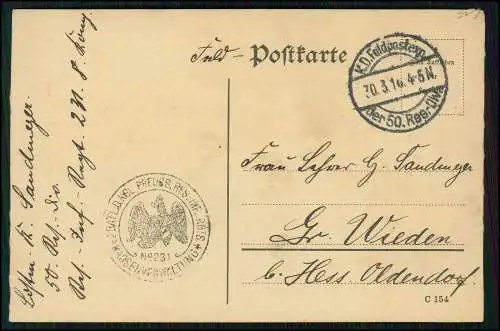 Feld-
Postkarte
K.D. Feldpostexp.
30.3.16. 4-5 N.
der 50. Res.-Div.
Frau Lehrer H. Sandmeyer
Gr. Wieden
b. Hess. Oldendorf.
C 154
Sandmeyer.
50. Res.-Div.
Res.-Inf.-Regt. 231. 8. Komp.
KÖNIGL. PREUSS. RES. INF. RGTS.
Nº 231
KASSENVERWALTUNG